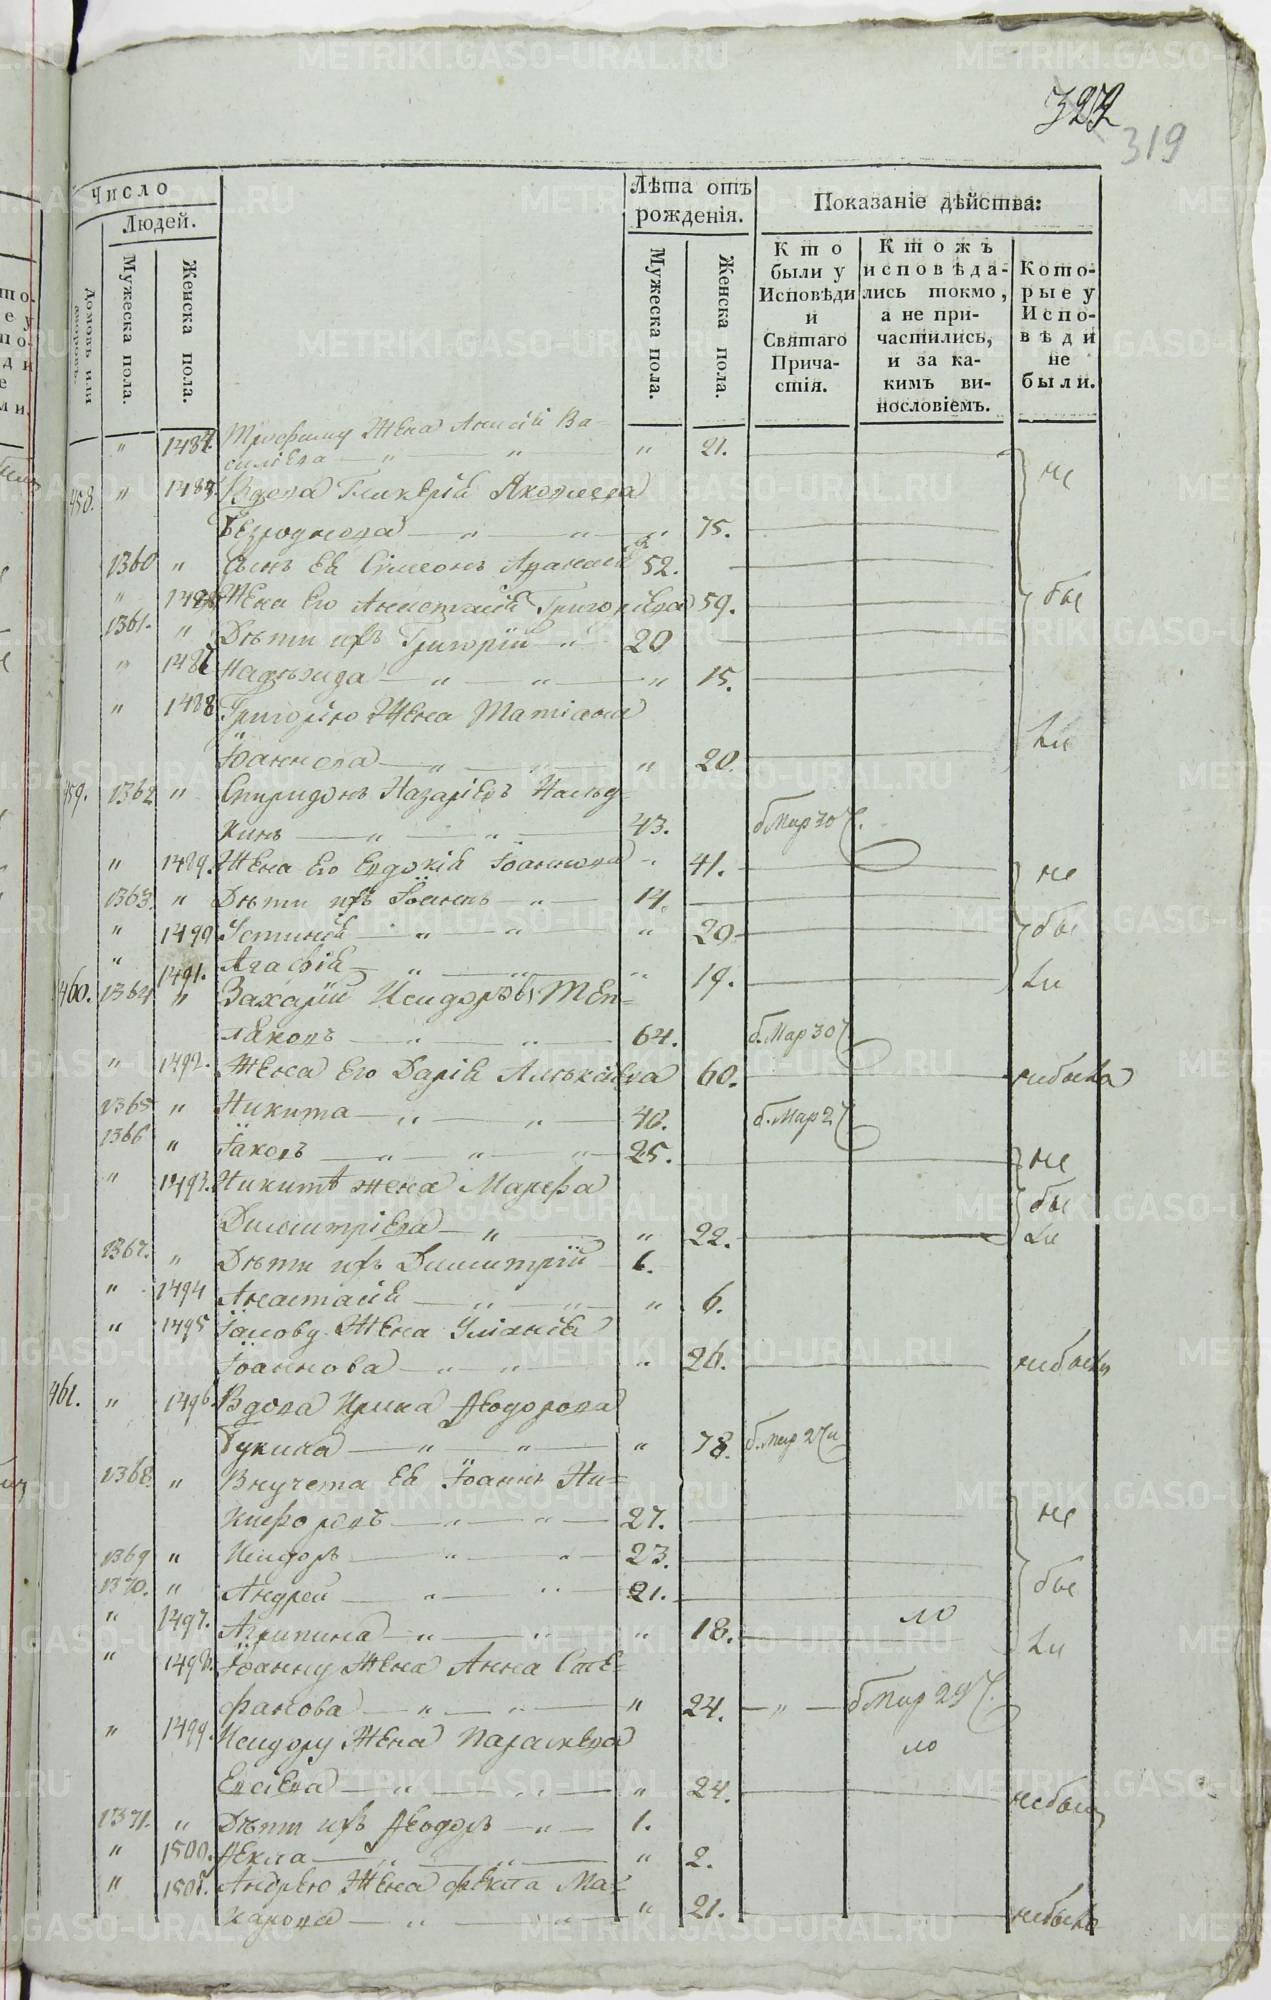 323
319
Число
Людей.
Домовъ или дворовъ.
Мужеска пола.
Женска пола.
Лѣта отъ рожденія.
Мужеска пола.
Женска пола.
Показаніе дѣйства:
Кто были у Исповѣди и Святаго Причастія.
Ктожъ исповѣдались токмо, а не причастились, и за какимъ винословіемъ.
Которые у Исповѣди не были.
" 1484. Трофиму Жена Анисія Ва-
силіева — " — " " 21.
458. " 1485. Вдова Гликерія Яковлева
Безроднова — " — " 75. не
1360 " Сынъ Ея Симеонъ 52.
" 1486 Жена Его Анастасія Григорьева 59. бы
1361. " Дѣти ихъ Григорій " 20
" 1487 Надежда — " — " — " 15.
" 1488 Григорію Жена Татіана
Іоаннова — " — " — " 20. ли
459. 1362 " Спиридонъ Назаріевъ
кинъ — " — " — 43. б. Мар 30 ч.
" 1489. Жена Его Евдокія Іоаннова " 41. не
1363. " Дѣти ихъ Іоаннъ — " — 14.
" 1490 Устинія — " — " " 20 бы
" 1491. Агафія — " — " " 19. ли
460. 1364 " Захарій Исидоровъ Теп=
ляковъ — " — " — 64. б. Мар 30 ч
" 1492. Жена Его Дарія Алексіева 60. небыла
1365 " Никита — " — " — 40. б. Мар 2 ч
1366 " Іаковъ — " — " — " — 25. не
" 1493. Никитѣ жена Марфа
Димитріева — " — " 22. бы ли
1367. " Дѣти ихъ Димитрій 6.
" 1494 Анастасія — " — " — " 6.
" 1495 Іакову Жена Уліанія
Іоаннова — " — " " 26. небыла
461. " 1496. Вдова Ирина Ѳеодорова
Гукина — " — " — " 78. б. Мар 27 ч
1368. " Внучата Ея Іоаннъ Ни=
кифоровъ — " — " — 27. не
1369 " Исидоръ — " — " — 23.
1370. " Андрей — " — " — 21. бы
" 1497. Агрипина — " — " " 18. ло ли
" 1498. Іоанну Жена Анна Сте=
фанова — " — " — " 24. — " — б Мар 29 ч.
" 1499. Исидору Жена Параскева ло
Евсіева — " — " — " 24. небыла
1371. " Дѣти ихъ Ѳеодоръ — " — 1.
" 1500. Ѳекла — " — " — " 2.
" 1501. Андрею Жена Ѳекла Ма=
карова — " — " " 21. небыла